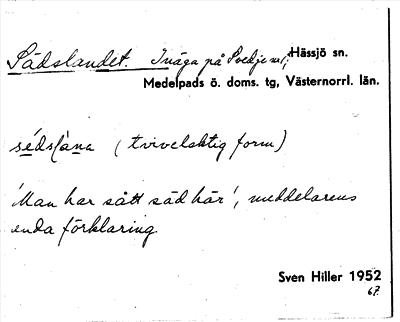 Sädslandet. Inäga på Svedje nr 1; Hässjö sn.
Medelpads ö. doms. tg, Västernorrl. län.
(tvivelaktig form)
'Man har sått säd här', meddelarens
enda förklaring.
Sven Hiller 1952
67.